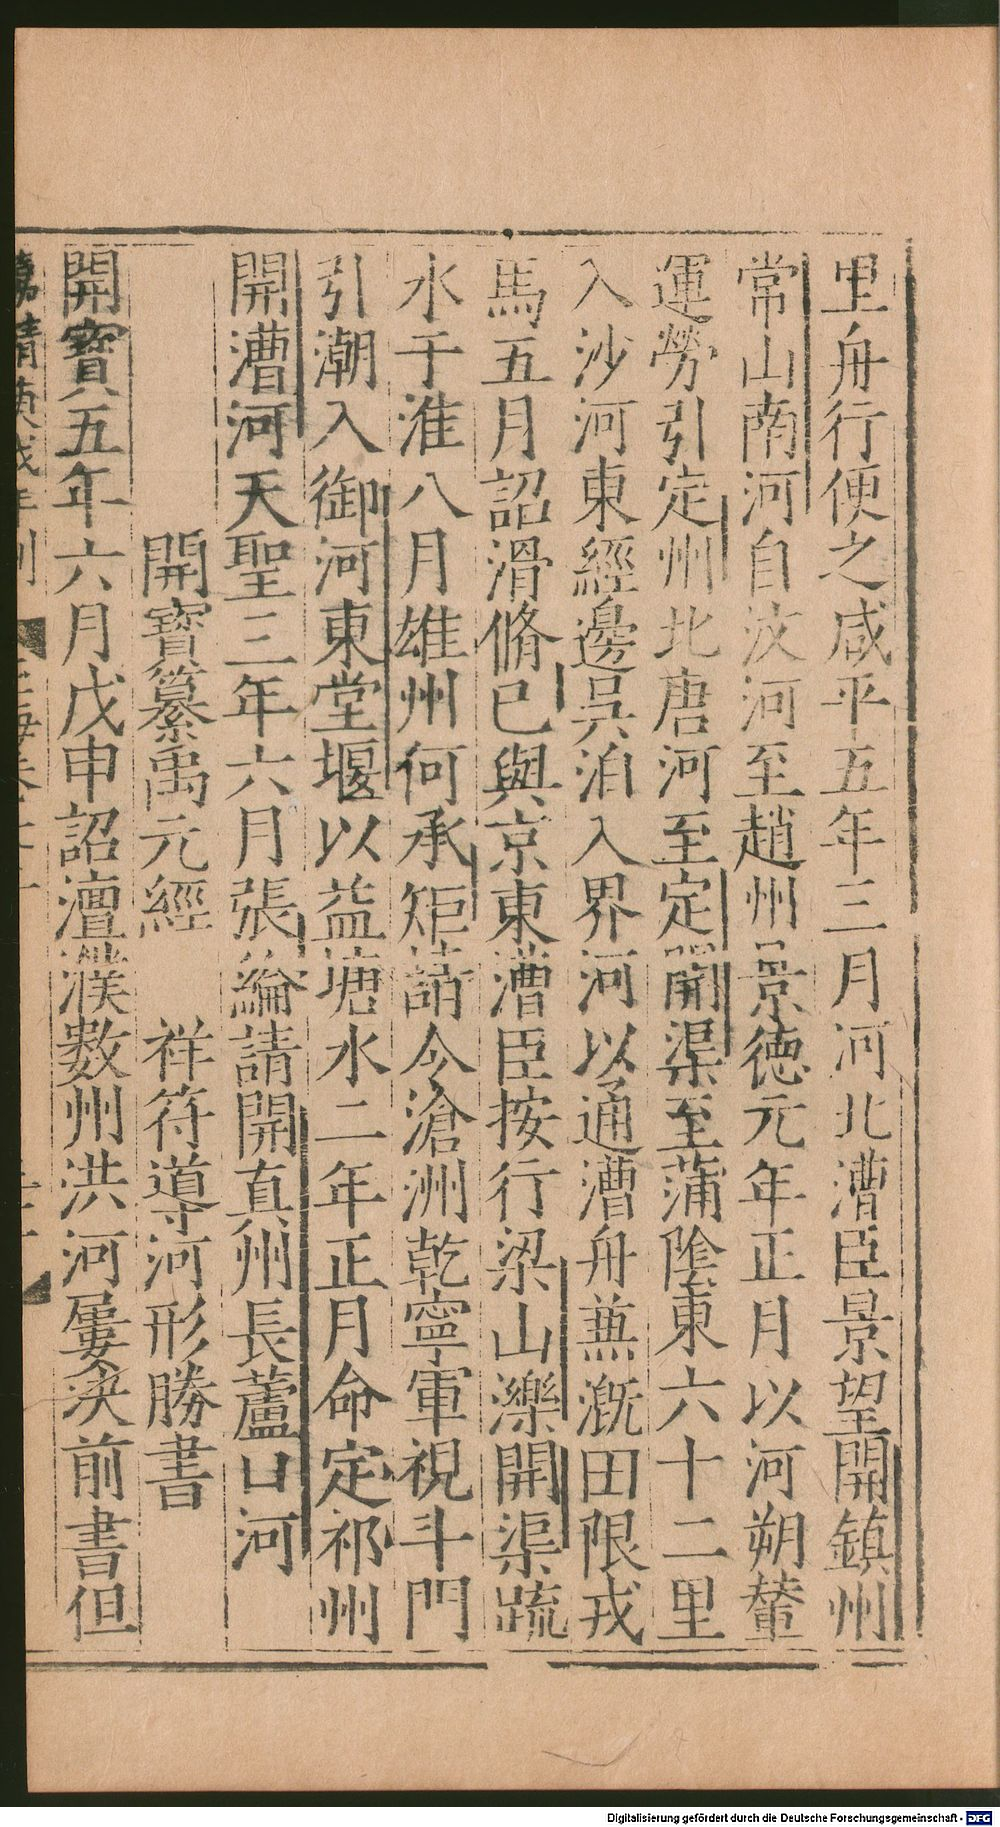 里舟行便之咸平五年三月河北漕臣景望開鎮州
常山南河自汶河至趙州景德元年正月以河朔輦
運勞引定州北唐河至定開渠至蒲陰東六十二里
入沙河東經邊吳泊入界河以通漕舟兼漑田限戎
馬五月詔滑脩已與京東漕臣按行梁山濼開渠疏
水于淮八月雄州何承矩請今滄洲乾寧軍視斗門
引潮入御河東堂堰以益塘水二年正月命定祁州
開漕河天聖三年六月張綸請開真州長蘆口河
開寶纂禹元經 祥符導河形勝書
開寶五年六月戊申詔澶濮數州洪河屢决前書但
Digitalisierung gefördert durch die Deutsche Forschungsgemeinschaft - DFG